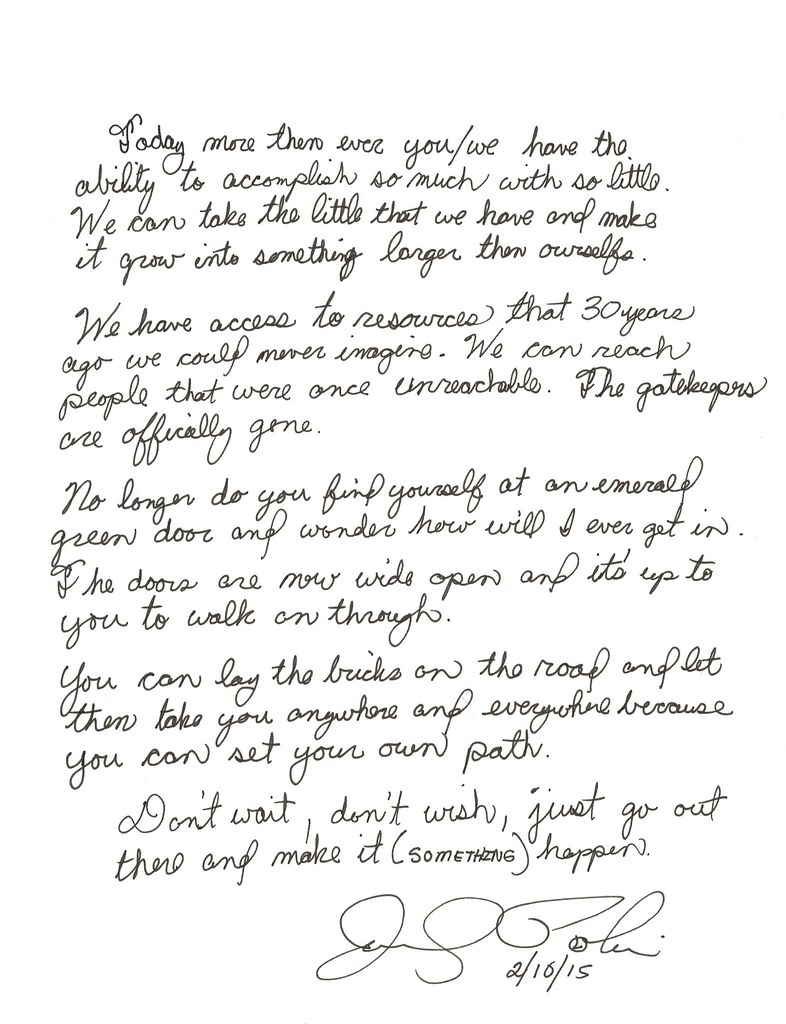 Today more then ever you/we have the
ability to accomplish so much with so little.
We can take the little that we have and make
it grow into something larger then ourselfs.
We have access to resources that 30 years
ago we could never imagine. We can reach
people that were once unreachable. The gatekeepers
are offically gone.
No longer do you find yourself at an emerald
green door and wonder how will I ever get in.
The doors are now wide open and it's up to
you to walk on through.
You can lay the bricks on the road and let
then take you anywhere and everywhere because
you can set your own path.
Don't wait, don't wish, just go out
there and make it (SOMETHING) happen.
2/16/15